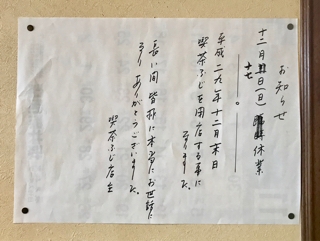 お知らせ
十二月十七日(日) 臨時休業
平成二九年十二月末日
喫茶ふじを閉店する事に
なりました。
長い間皆様に本当にお世話に
なり ありがとうございました。
喫茶ふじ店主